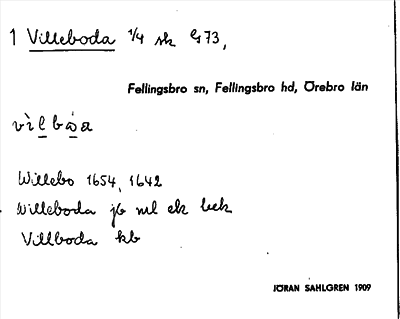 1 Villeboda 1/4 sk G73,
Fellingsbro sn, Fellingsbro hd, Örebro län
vìlbòa
Willebo 1654, 1642
Willeboda jb ml ek bek
Villboda kb
JÖRAN SAHLGREN 1909